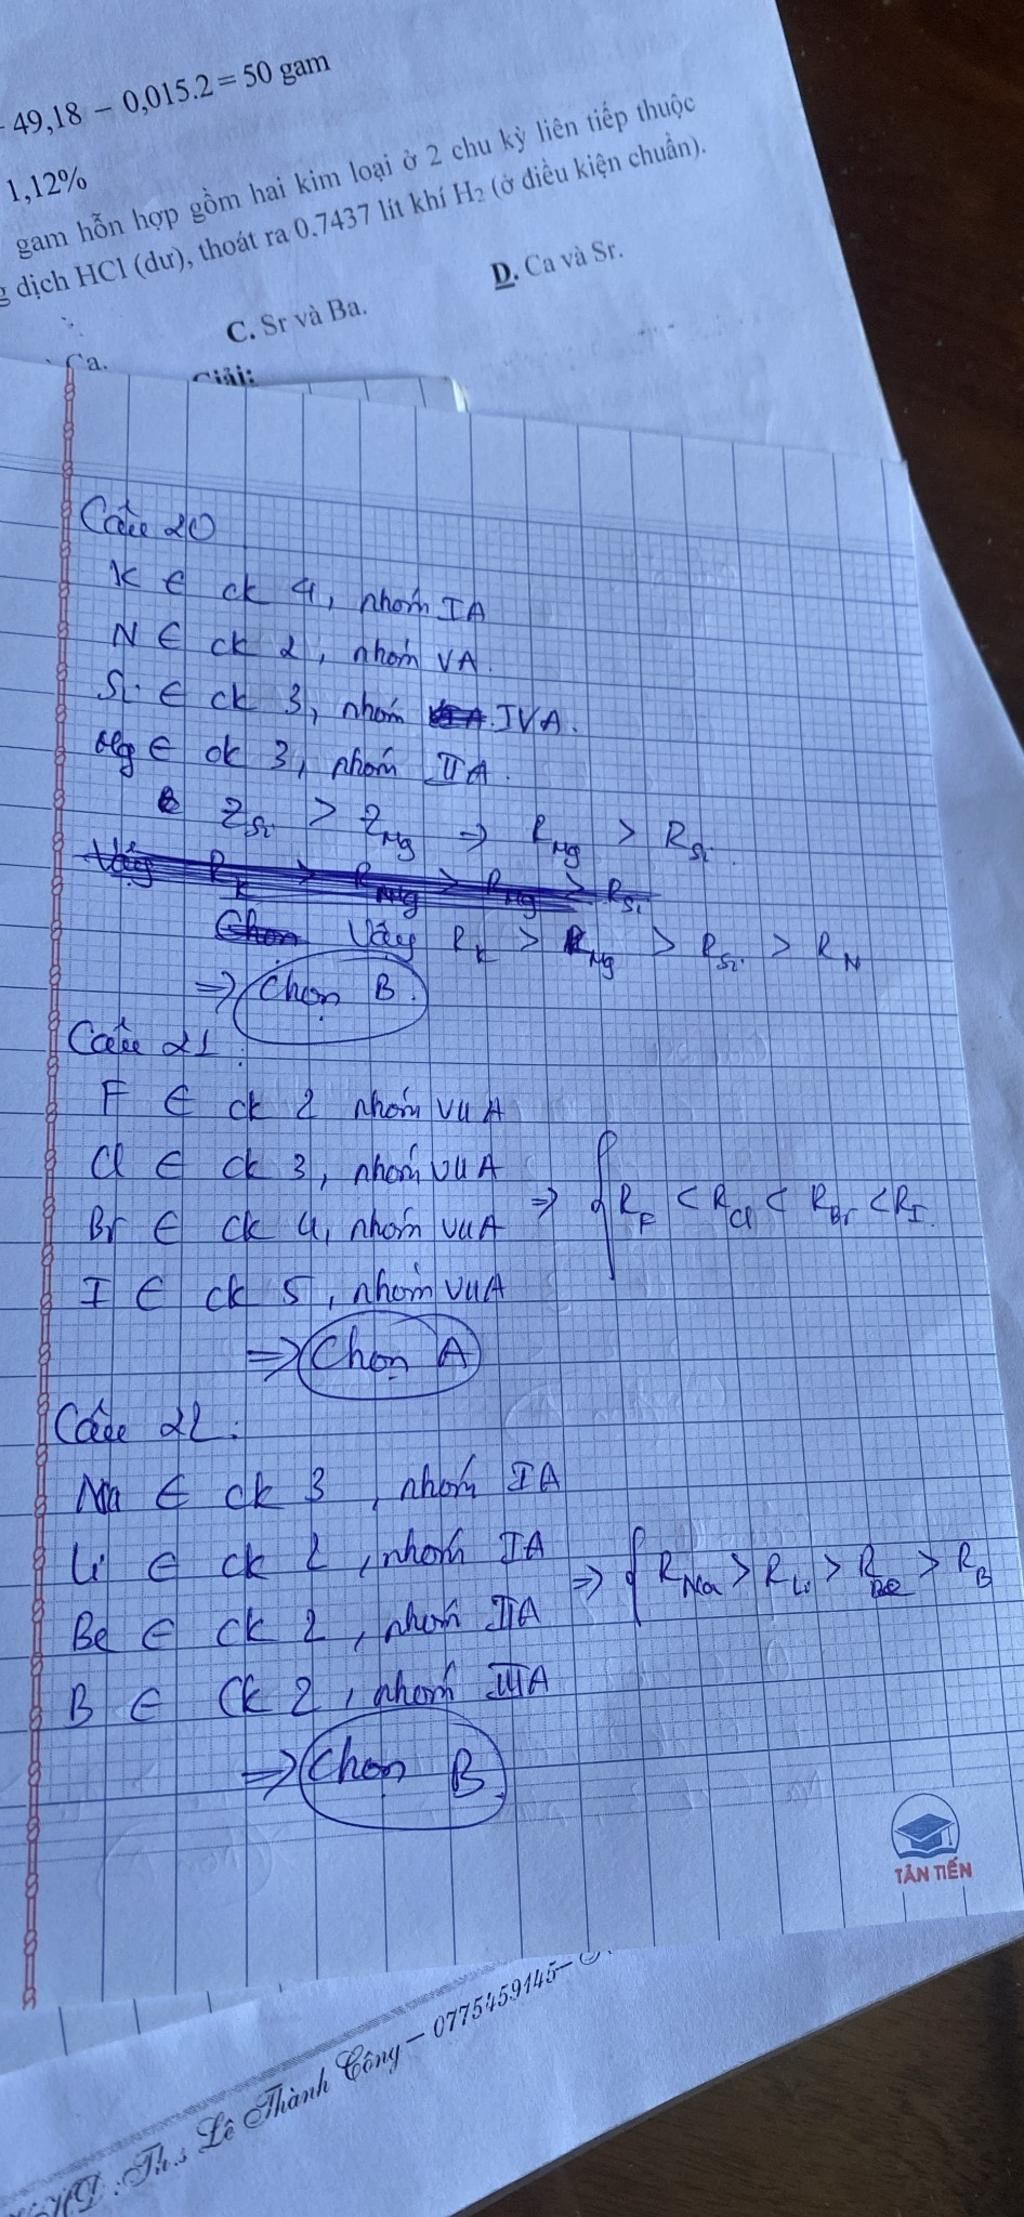 - 49,18 - 0,015.2 = 50 gam
1,12%
gam hỗn hợp gồm hai kim loại ở 2 chu kỳ liên tiếp thuộc
dịch HCl (dư), thoát ra 0.7437 lít khí H₂ (ở điều kiện chuẩn).
Ca.
C. Sr và Ba.
D. Ca và Sr.
Giải:
Câu 20
K ∈ ck 4, nhóm IA
N ∈ ck 2, nhóm VA.
Si ∈ ck 3, nhóm IVA.
Mg ∈ ck 3, nhóm IIA.
Z_Si > Z_Mg => R_Mg > R_Si.
Vậy R_K > R_Mg > R_Si > R_N
=> Chọn B.
Câu 21:
F ∈ ck 2 nhóm VIIA
Cl ∈ ck 3, nhóm VIIA
Br ∈ ck 4, nhóm VIIA => { R_F < R_Cl < R_Br < R_I.
I ∈ ck 5, nhóm VIIA
=> Chọn A
Câu 22:
Na ∈ ck 3, nhóm IA
Li ∈ ck 2, nhóm IA => { R_Na > R_Li > R_Be > R_B
Be ∈ ck 2, nhóm IIA
B ∈ Ck 2, nhóm IIIA
=> Chọn B.
TÂN TIẾN
: Th.s Lê Thành Công – 0775459145–